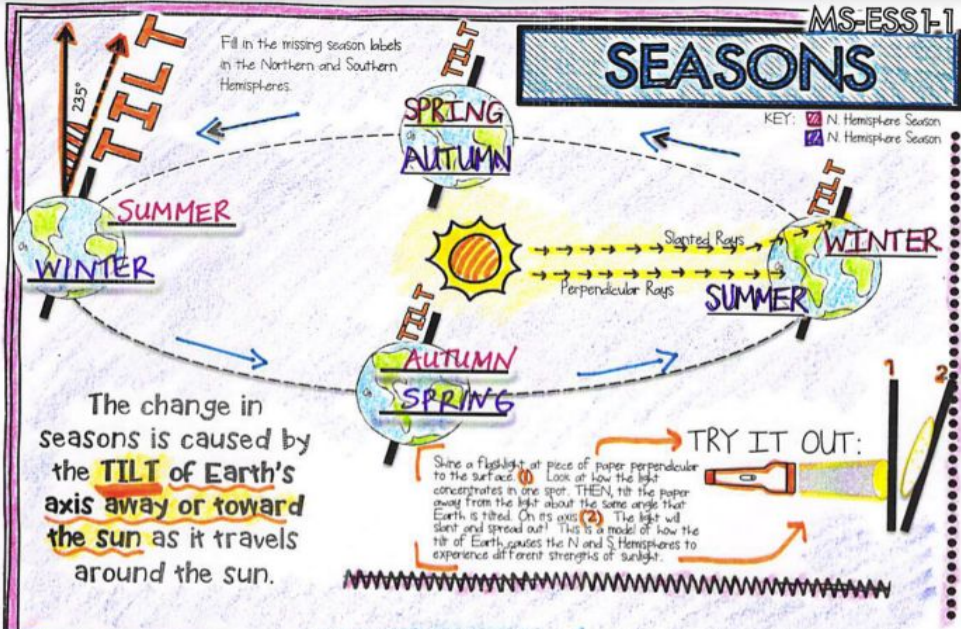 MS-ESS1-1
SEASONS
Fill in the missing season labels
in the Northern and Southern
Hemispheres.
KEY: N. Hemisphere Season
N. Hemisphere Season
23.5°
TILT
TILT
SPRING
AUTUMN
SUMMER
WINTER
TILT
WINTER
SUMMER
Slanted Rays
Perpendicular Rays
TILT
AUTUMN
SPRING
The change in
seasons is caused by
the TILT of Earth's
axis away or toward
the sun as it travels
around the sun.
TRY IT OUT:
1
2
Shine a flashlight at piece of paper perpendicular
to the surface. (1) Look at how the light
concentrates in one spot. THEN, tilt the paper
away from the light about the same angle that
Earth is tilted. On its axis (2) The light will
slant and spread out! This is a model of how the
tilt of Earth causes the N and S Hemispheres to
experience different strengths of sunlight.